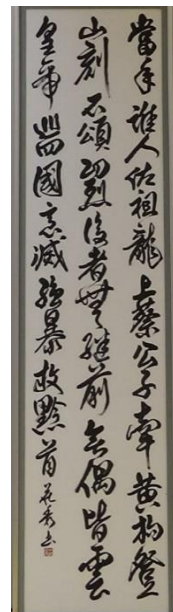 當年誰人佐祖龍上蔡公子牽黃狗登
山刻石頌功烈後者無繼前無偶皆云
皇帝巡四國烹滅強暴救黔首 花秀書